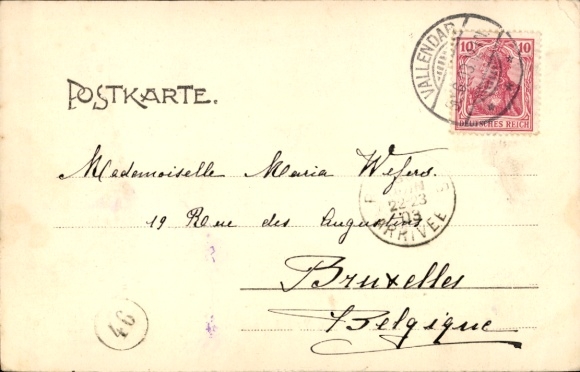 VALLENDAR
10 10
DEUTSCHES REICH
POSTKARTE.
Mademoiselle Maria Wefers.
19 Rue des Augustins
22-23
03
ARRIVEE
Bruxelles
Belgique
46